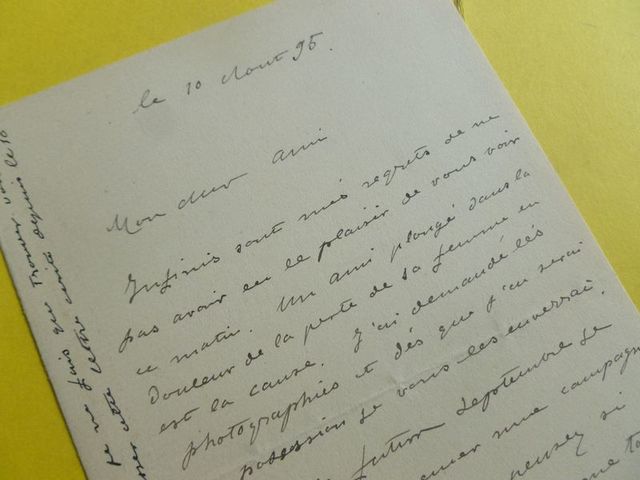 le 10 Aout 95.
Mon cher ami
Infinis sont mes regrets de ne
pas avoir eu le plaisir de vous voir
ce matin. Un ami plongé dans la
douleur de la perte de sa femme en
est la cause. J'ai demandé les
photographies et dès que j'en serai
possession je vous les enverrai.
futur Septembre je
mener une campagne
pensez si
Je ne fais que trouver
cette lettre écrite depuis le 10